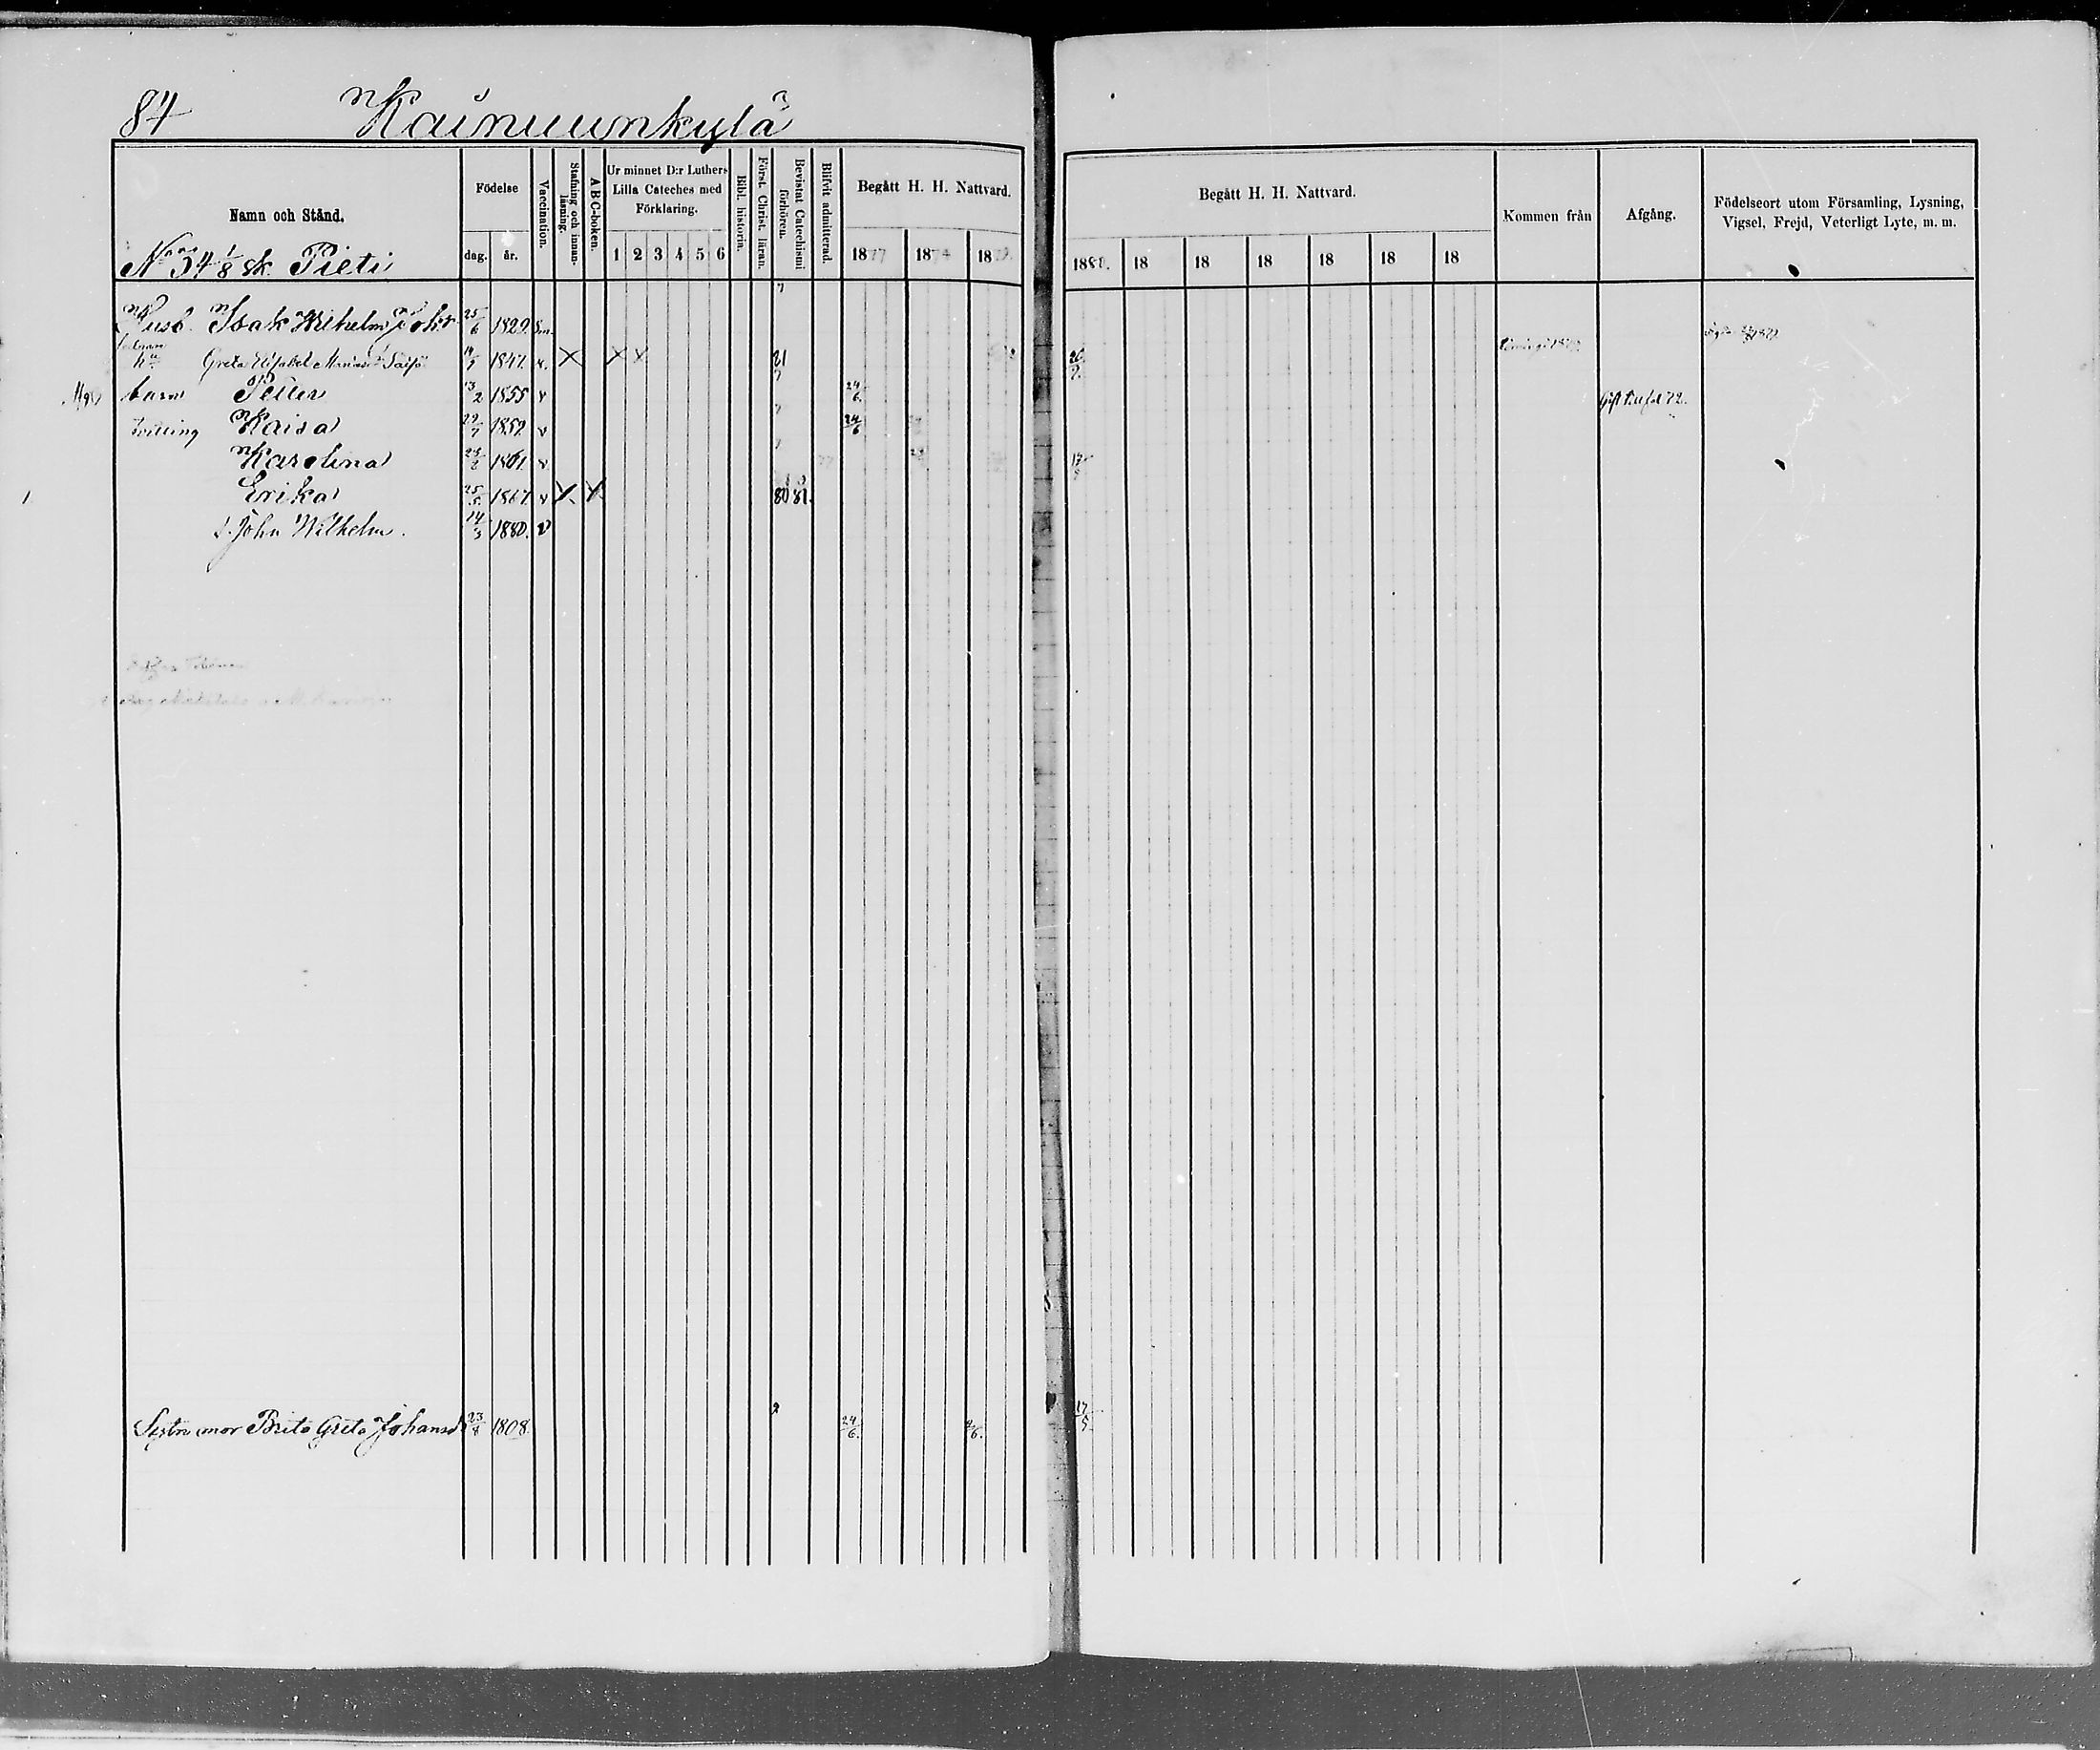 84 Kainuunkylä
Namn och Stånd.
Födelse
dag. år.
Vaccination.
Stafning och innan-läsning.
A B C-boken.
Ur minnet D:r Luthers Lilla Cateches med Förklaring.
1 2 3 4 5 6
Bibl. historia.
Först. Christ. läran.
Bevistat Catechismi förhören.
Blifvit admitterad.
Begått H. H. Nattvard.
1877 187 18
Begått H. H. Nattvard.
1880. 18 18 18 18 18 18
Kommen från
Afgång.
Födelseort utom Församling, Lysning, Vigsel, Frejd, Veterligt Lyte, m. m.
No 34 1/8 sk. Pieti
Husb. Isak Wilhelm Joh:s 25/6 1829.
hu Greta Elisabet 1847. v. X X X 21 20/9.
barn Petter 13/2 1855 v 24/6. Gift till fol 72.
Kaisa 1859. v 24/6
Karolina 1861. v 17
1 Erika 25/5 1867. v X X 80 81.
s. John Wilhelm. 14/3 1880. v
mor Brita Greta Johansd 23/8 1808. 24/6. /6. 17/5